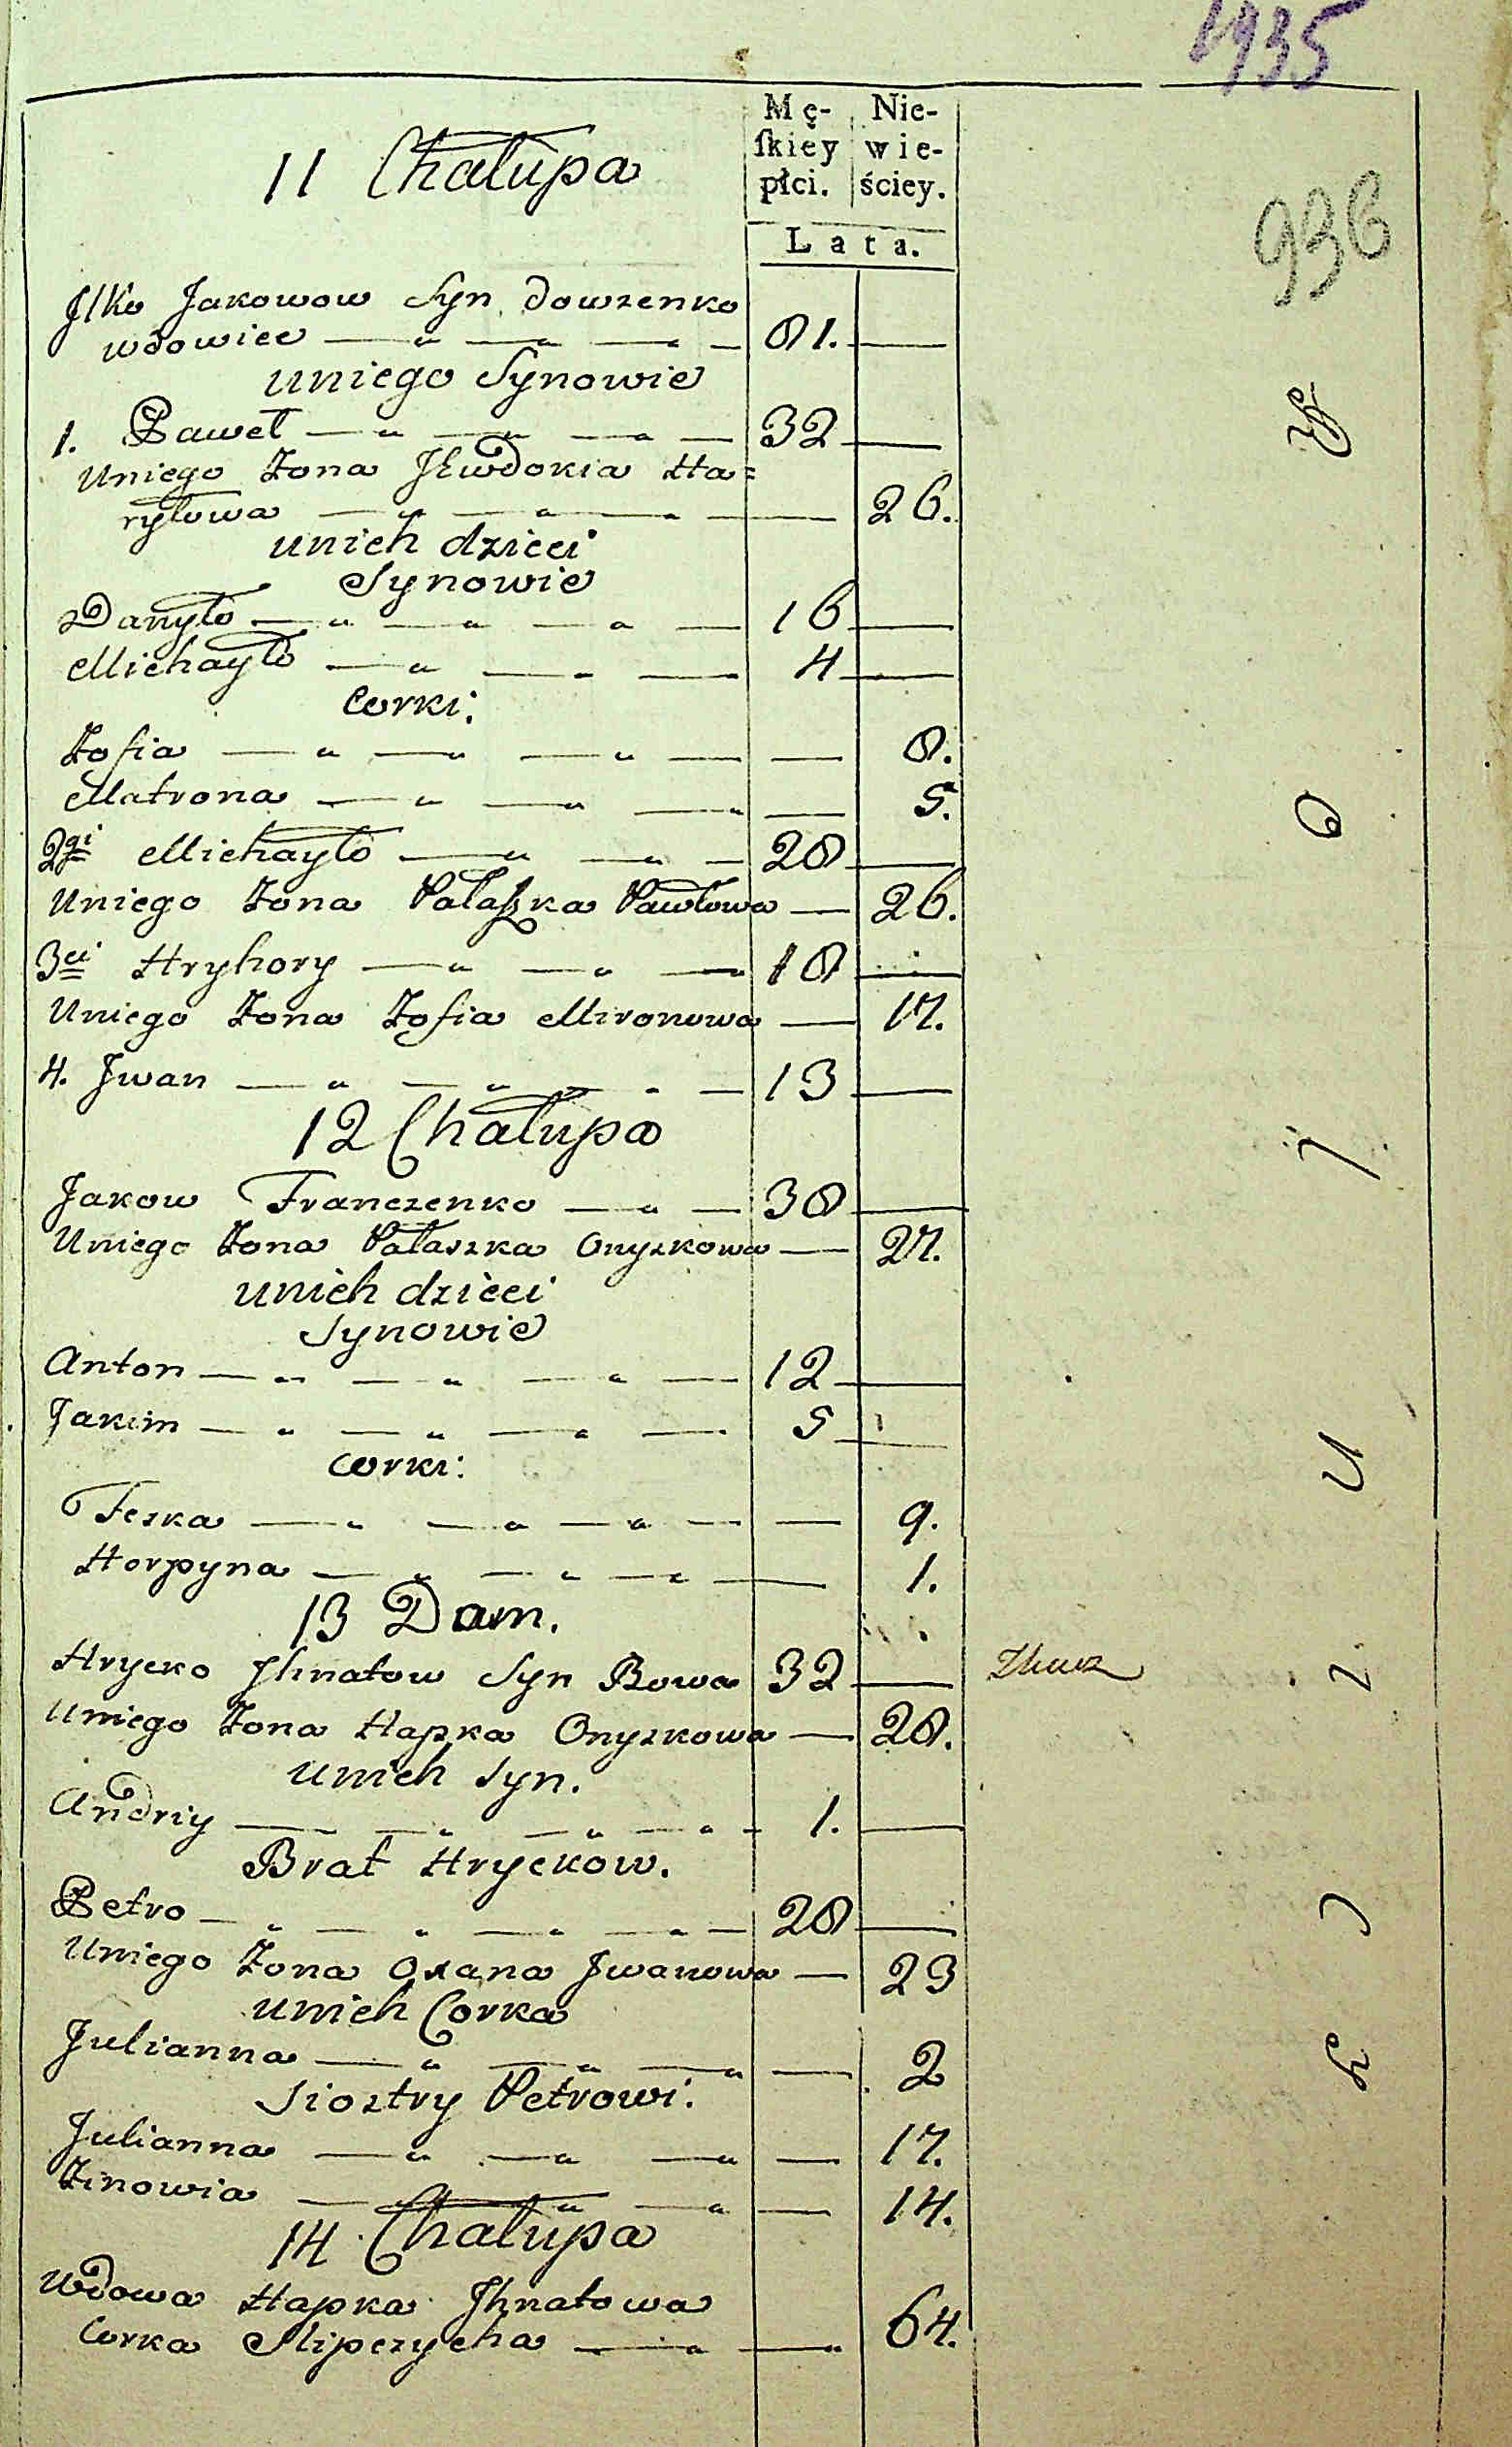 1935
Mę-
ſkiey
płci.
Nie-
wie-
ściey.
Lata.
936
11 Chałupa
Jlko Jakowow Syn Dowzenko
wdowiec 81.
uniego Synowie
1. Paweł 32
uniego Zona JEwdokia Ha=
ryłowa 26.
unich dzieci
Synowie
Danyło 16
Michayło 4
Corki:
Zofia 8.
Matrona 5.
2gi Michayło 28
uniego Zona Pałaszka Pawłowa 26.
3ci Hryhory 18
Uniego Zona Zofia Mironowa 17.
4. Jwan 13
12 Chałupa
Jakow Franczenko 38
Uniego Zona Pałaszka Onyszkowa 27.
unich dzieci
Synowie
Anton 12
Jakim 5
corki:
Feska 9.
Horpyna 1.
13 Dom.
Hrycko Jhnatow Syn Bowa 32
Uniego Zona Hapka Onyszkowa 28.
unich Syn.
Andriy 1.
Brat Hryckow.
Petro 28
Uniego Zona Oxana Jwanowa 23
unich Corka
Julianna 2
Siostry Petrowi:
Julianna 17.
Zinowia 14.
14 Chałupa
Wdowa Hapka Jhnatowa
Corka Slipczycha 64.